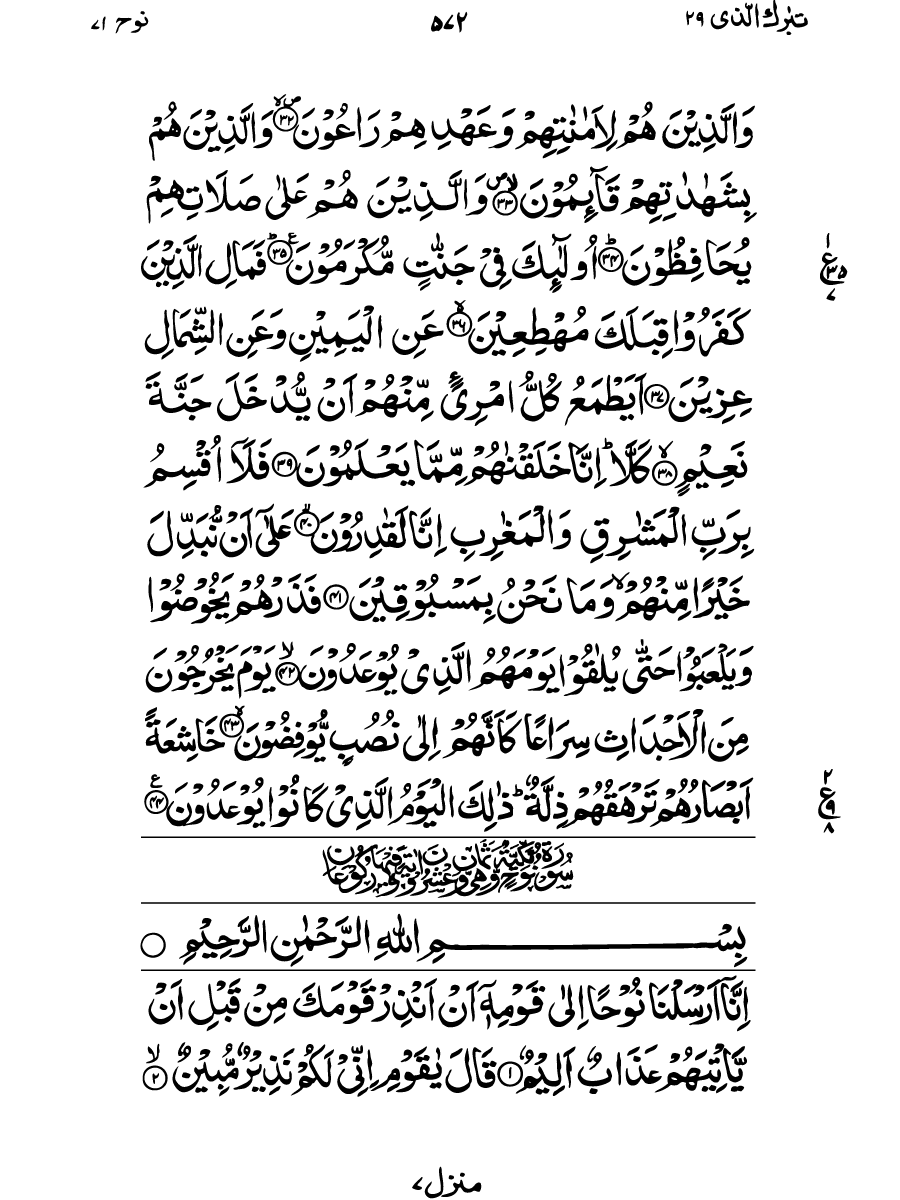 تبٰرك الّذى ٢٩
٥٧٢
نوح ٧١
وَالَّذِيۡنَ هُمۡ لِاَمٰنٰتِهِمۡ وَعَهۡدِهِمۡ رَاعُوۡنَ ۙ‏ۖ ﴿۳۲﴾ وَالَّذِيۡنَ هُمۡ
بِشَهٰدٰتِهِمۡ قَآٮِٕمُوۡنَ ۙ‏ۖ ﴿۳۳﴾ وَالَّذِيۡنَ هُمۡ عَلٰى صَلَاتِهِمۡ
يُحَافِظُوۡنَ ؕ‏ ﴿۳۴﴾ اُولٰٓٮِٕكَ فِىۡ جَنّٰتٍ مُّكۡرَمُوۡنَ ؕ ع ﴿۳۵﴾ فَمَالِ الَّذِيۡنَ
ع ١ ٣٥ ٧
كَفَرُوۡا قِبَلَكَ مُهۡطِعِيۡنَ ۙ‏ ﴿۳۶﴾ عَنِ الۡيَمِيۡنِ وَعَنِ الشِّمَالِ
عِزِيۡنَ ﴿۳۷﴾ اَيَطۡمَعُ كُلُّ امۡرِیءٍ مِّنۡهُمۡ اَنۡ يُّدۡخَلَ جَنَّةَ
نَعِيۡمٍۙ‏ ﴿۳۸﴾ كَلَّا ؕ اِنَّا خَلَقۡنٰهُمۡ مِّمَّا يَعۡلَمُوۡنَ ﴿۳۹﴾ فَلَاۤ اُقۡسِمُ
بِرَبِّ الۡمَشٰرِقِ وَالۡمَغٰرِبِ اِنَّا لَقٰدِرُوۡنَۙ‏ ﴿۴۰﴾ عَلٰٓى اَنۡ نُّبَدِّلَ
خَيۡرًا مِّنۡهُمۡۙ وَمَا نَحۡنُ بِمَسۡبُوۡقِيۡنَ ﴿۴۱﴾ فَذَرۡهُمۡ يَخُوۡضُوۡا
وَيَلۡعَبُوۡا حَتّٰى يُلٰقُوۡا يَوۡمَهُمُ الَّذِىۡ يُوۡعَدُوۡنَۙ‏ ﴿۴۲﴾ يَوۡمَ يَخۡرُجُوۡنَ
مِنَ الۡاَجۡدَاثِ سِرَاعًا كَاَنَّهُمۡ اِلٰى نُصُبٍ يُّوۡفِضُوۡنَۙ‏ ﴿۴۳﴾ خَاشِعَةً
اَبۡصَارُهُمۡ تَرۡهَقُهُمۡ ذِلَّةٌ ؕ ذٰلِكَ الۡيَوۡمُ الَّذِىۡ كَانُوۡا يُوۡعَدُوۡنَ ع ﴿۴۴﴾
ع ٢ ٩ ٨
سُوۡرَةُ نُوۡحٍ مَّكِّيَّةٌ وَّهِىَ ثَمَانٍ وَّعِشۡرُوۡنَ اٰيَةً وَّفِيۡهَا رُكُوۡعَانِ
بِسۡمِ اللهِ الرَّحۡمٰنِ الرَّحِيۡمِ ○
اِنَّاۤ اَرۡسَلۡنَا نُوۡحًا اِلٰى قَوۡمِهٖۤ اَنۡ اَنۡذِرۡ قَوۡمَكَ مِنۡ قَبۡلِ اَنۡ
يَّاۡتِيَهُمۡ عَذَابٌ اَلِيۡمٌ ﴿۱﴾ قَالَ يٰقَوۡمِ اِنِّىۡ لَكُمۡ نَذِيۡرٌ مُّبِيۡنٌۙ‏ ﴿۲﴾
منزل ٧